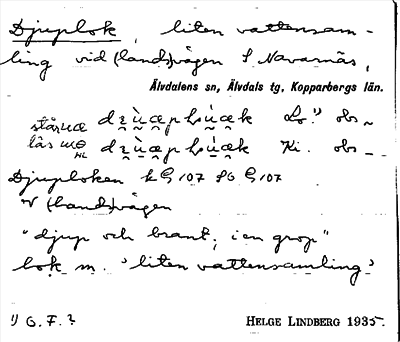 Djuplok, liten vattensam-
ling vid (lands)vägen S Navarnäs,
Älvdalens sn, Älvdals tg, Kopparbergs län.
Lo.¹⁾ obs
Ki. obs
Djuploken k G 107 SO G 107
V (lands)vägen
"djup och brant, i en grop"
lok m. 'liten vattensamling'
1) G. F. ?
HELGE LINDBERG 1935.